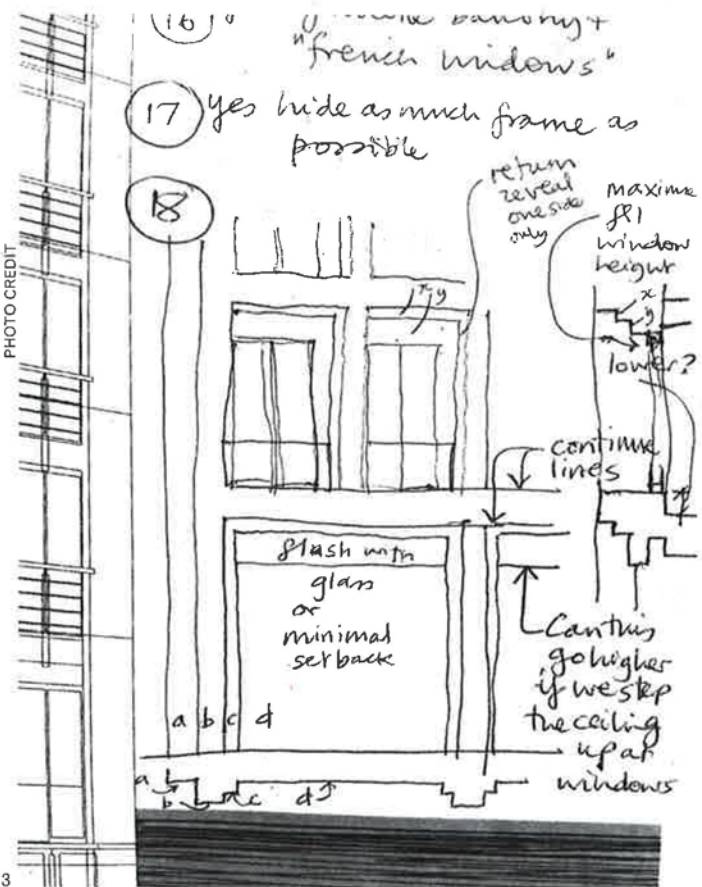 16
balcony +
"french windows"
17 yes hide as much frame as
possible
18
return
reveal
one side
only
maximise
window
height
x
y
x
y
lower?
continue
lines
flush with
glass
or
minimal
setback
Can this
go higher
if we step
the ceiling
up at
windows
a b c d
a
b
c
d
x
PHOTO CREDIT
3